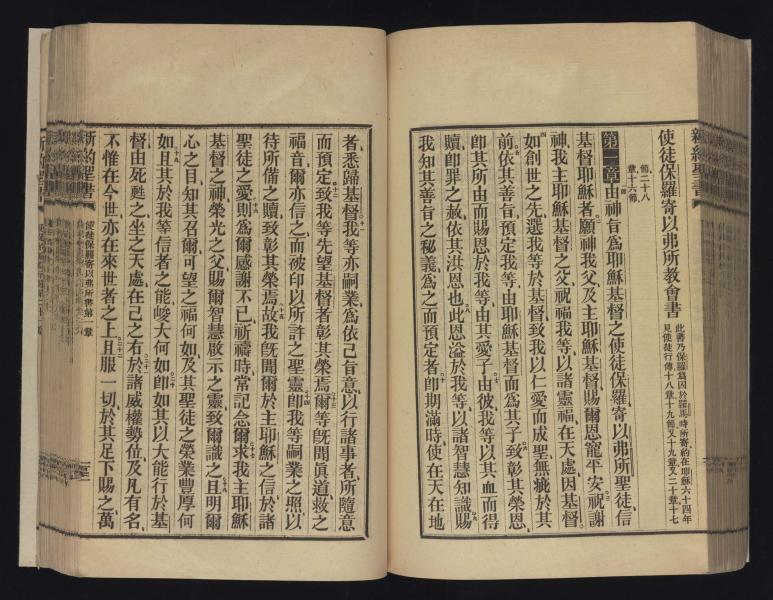 新約聖書
使徒保羅寄以弗所教會書
此書乃保羅爲囚於羅馬時所寄約在耶穌六十四年
見使徒行傳十八章十九節又十九章又二十章十七
節二十八
章十六節
第一章
由神旨爲耶穌基督之使徒保羅寄以弗所聖徒信
基督耶穌者願神我父及主耶穌基督賜爾恩寵平安祝謝
神我主耶穌基督之父祝福我等以諸靈福在天處因基督
如創世之先選我等於基督致我以仁愛而成聖無疵於其
前依其善旨預定我等由耶穌基督而爲其子致彰其榮恩
卽其所由而賜恩於我等由其愛子由彼我等以其血而得
贖卽罪之赦依其洪恩也此恩溢於我等以諸智慧知識賜
我知其善旨之秘義爲之而預定者卽期滿時使在天在地
者悉歸基督我等亦嗣業爲依己旨意以行諸事者所隨意
而預定致我等先望基督者彰其榮焉爾等旣聞眞道救之
福音爾亦信之而被印以所許之聖靈卽我等嗣業之照以
待所備之贖致彰其榮焉故我旣聞爾於主耶穌之信於諸
聖徒之愛則爲爾感謝不已祈禱時常記念爾求我主耶穌
基督之神榮光之父賜爾智慧啟示之靈致爾識之且明爾
心之目知其召爾可望之福何如及其聖徒之榮業豐厚何
如且其於我等信者之能峻大何如卽如其以大能行於基
督由死甦之坐之天處在己之右於諸威權勢位及凡有名
不惟在今世亦在來世者之上且服一切於其足下賜之萬
新約聖書
使徒保羅寄以弗所書第一章